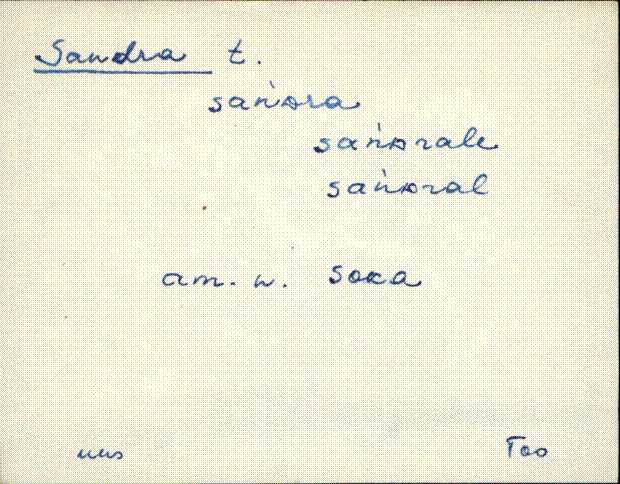 Sandra t.
sań​ᴅra
sań​ᴅrale
sań​ᴅral
am. w. Soka
uus Too